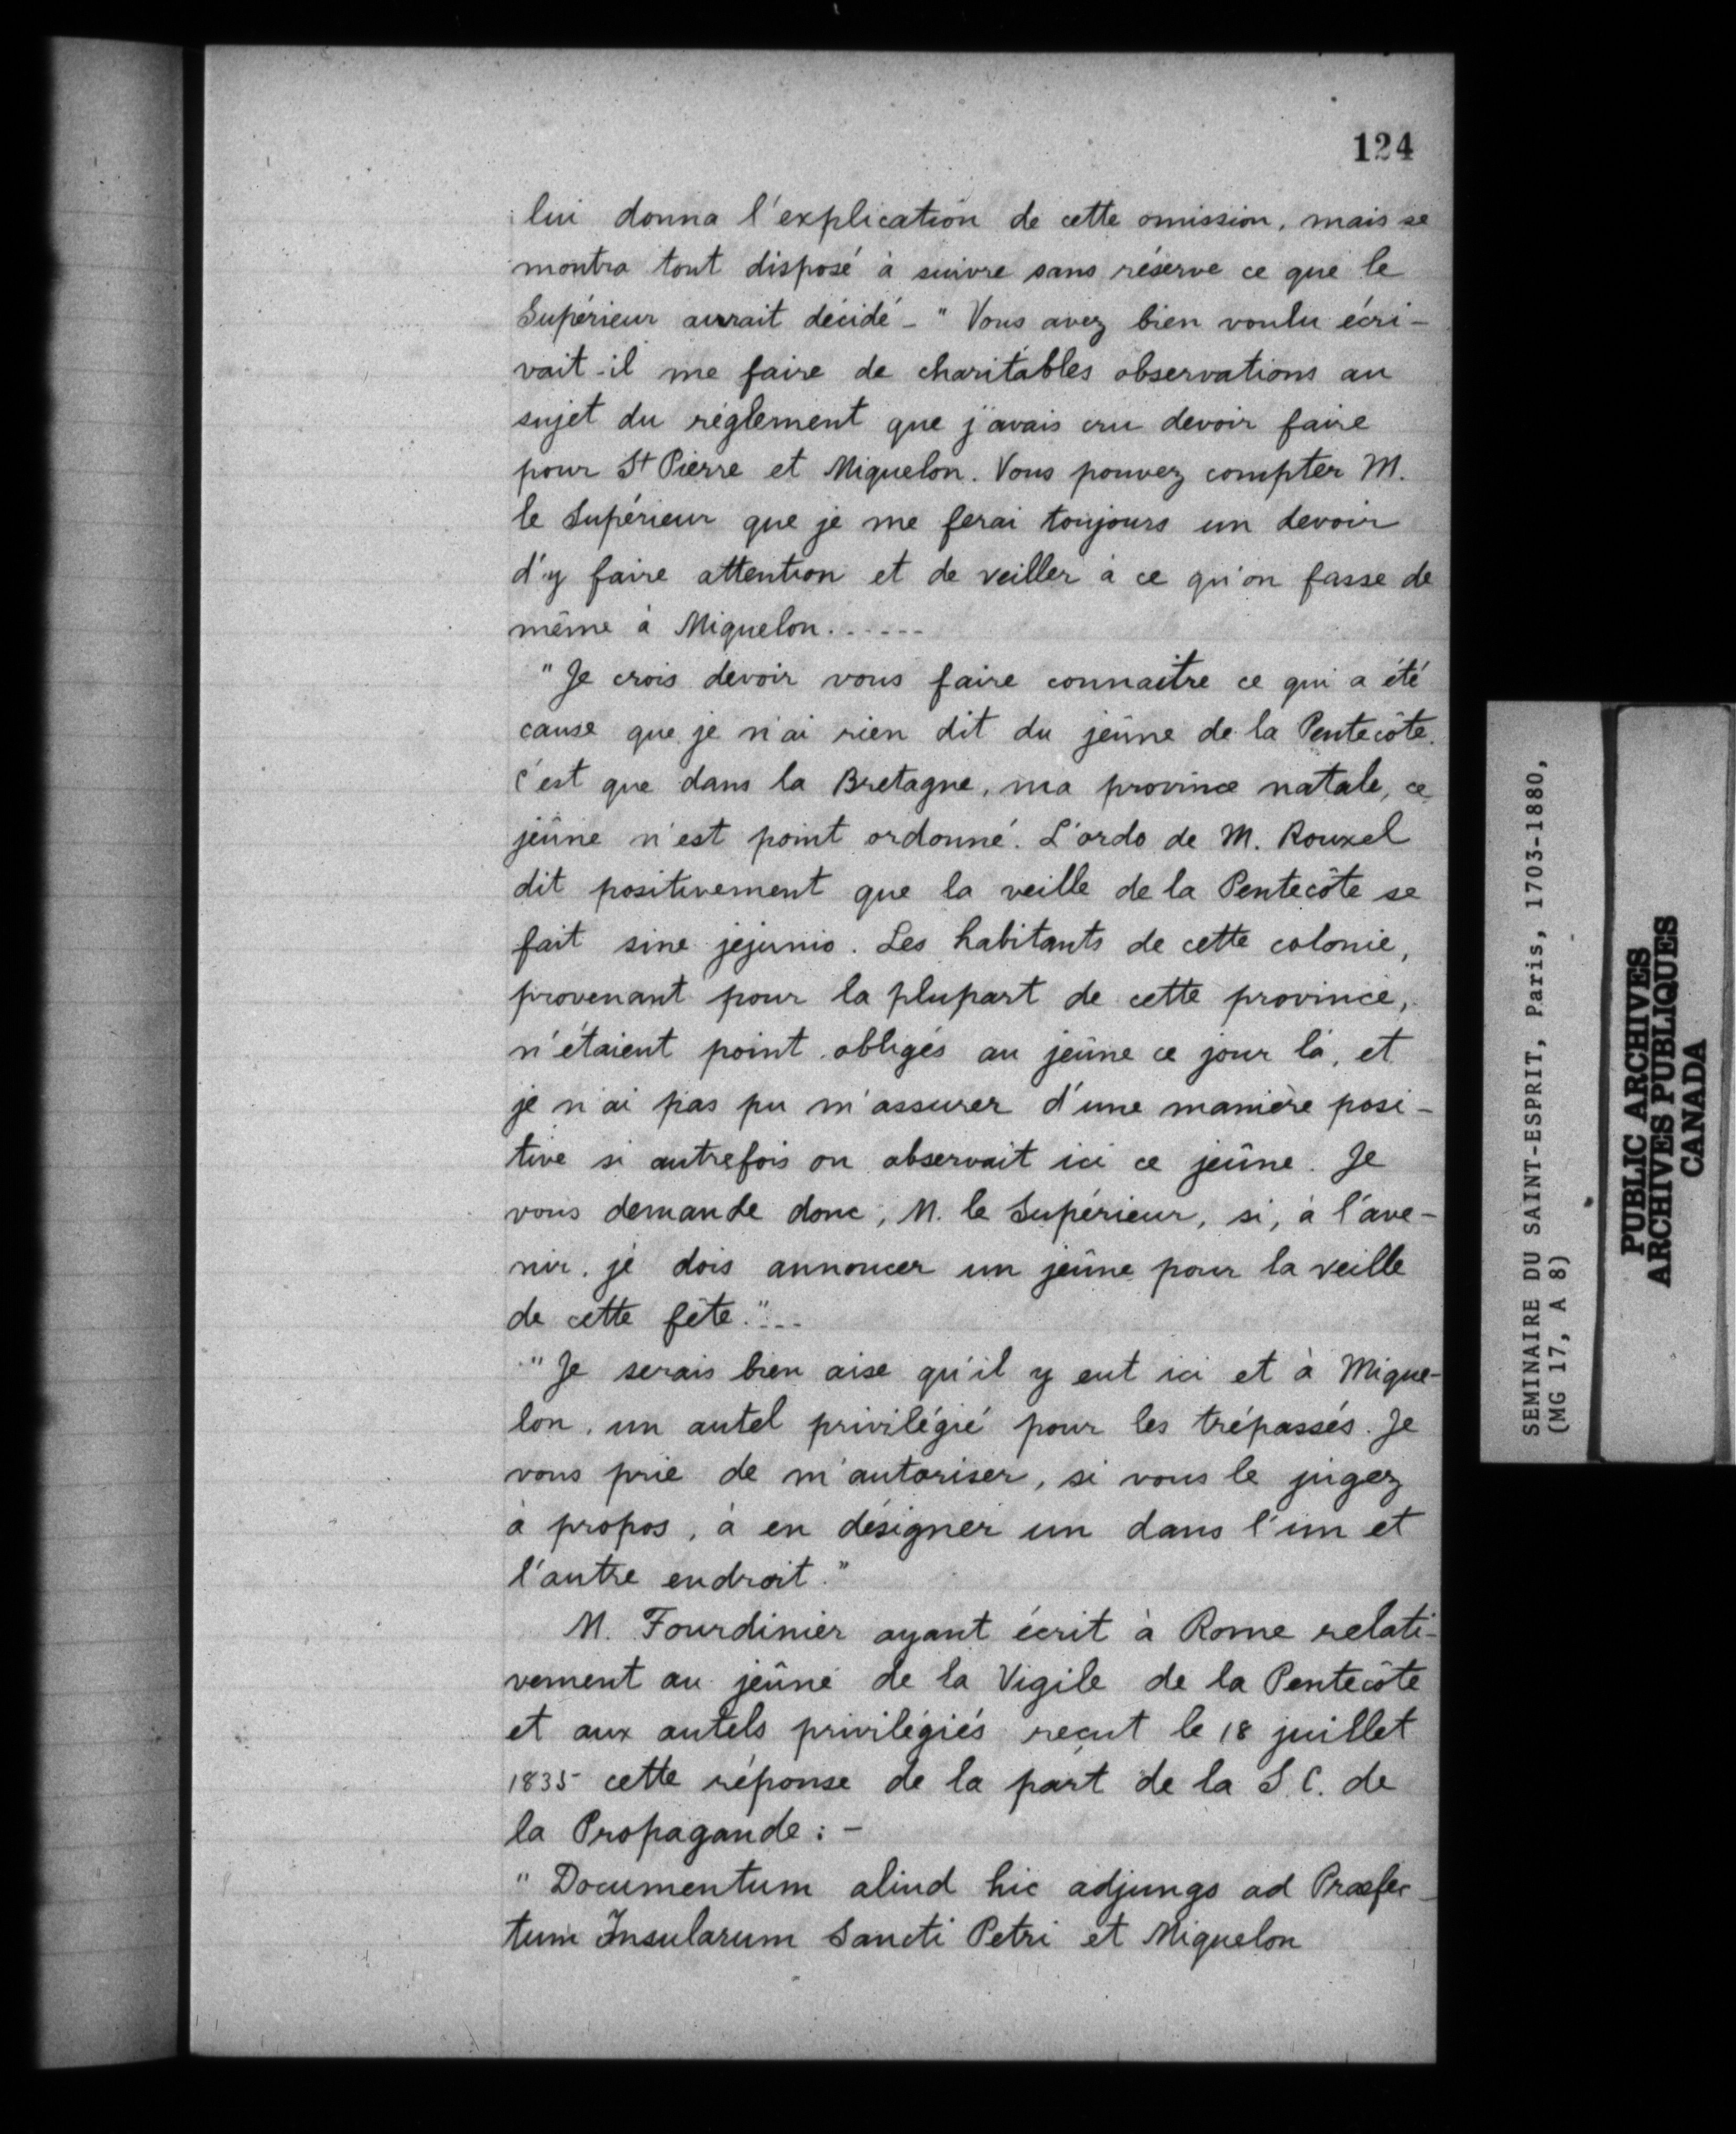 124
lui donna l'explication de cette omission, mais se
montra tout disposé à suivre sans réserve ce que le
Supérieur aurait décidé - " Vous avez bien voulu écri-
vait-il me faire de charitables observations au
sujet du règlement que j'avais cru devoir faire
pour St Pierre et Miquelon. Vous pouvez compter M.
le Supérieur que je me ferai toujours un devoir
d'y faire attention et de veiller à ce qu'on fasse de
même à Miquelon. . . . . . .
" Je crois devoir vous faire connaitre ce qui a été
cause que je n'ai rien dit du jeûne de la Pentecôte.
C'est que dans la Bretagne, ma province natale, ce
jeûne n'est point ordonné. L'ordo de M. Rouxel
dit positivement que la veille de la Pentecôte se
fait sine jejunio. Les habitants de cette colonie,
provenant pour la plupart de cette province,
n'étaient point obligés au jeûne ce jour là, et
je n'ai pas pu m'assurer d'une manière posi-
tive si autrefois on observait ici ce jeûne. Je
vous demande donc, M. le Supérieur, si, à l'ave-
nir, je dois annoncer un jeûne pour la veille
de cette fête."...
" Je serais bien aise qu'il y eut ici et à Mique-
lon, un autel privilégié pour les trépassés. Je
vous prie de m'autoriser, si vous le jugez
à propos, à en désigner un dans l'un et
l'autre endroit."
M. Fourdinier ayant écrit à Rome relati-
vement au jeûne de la Vigile de la Pentecôte
et aux autels privilégiés reçut le 18 juillet
1835 cette réponse de la part de la S. C. de
la Propagande : -
" Documentum aliud hic adjungo ad Praefec-
tum Insularum Sancti Petri et Miquelon
SEMINAIRE DU SAINT-ESPRIT, Paris, 1703-1880,
(MG 17, A 8)
PUBLIC ARCHIVES
ARCHIVES PUBLIQUES
CANADA